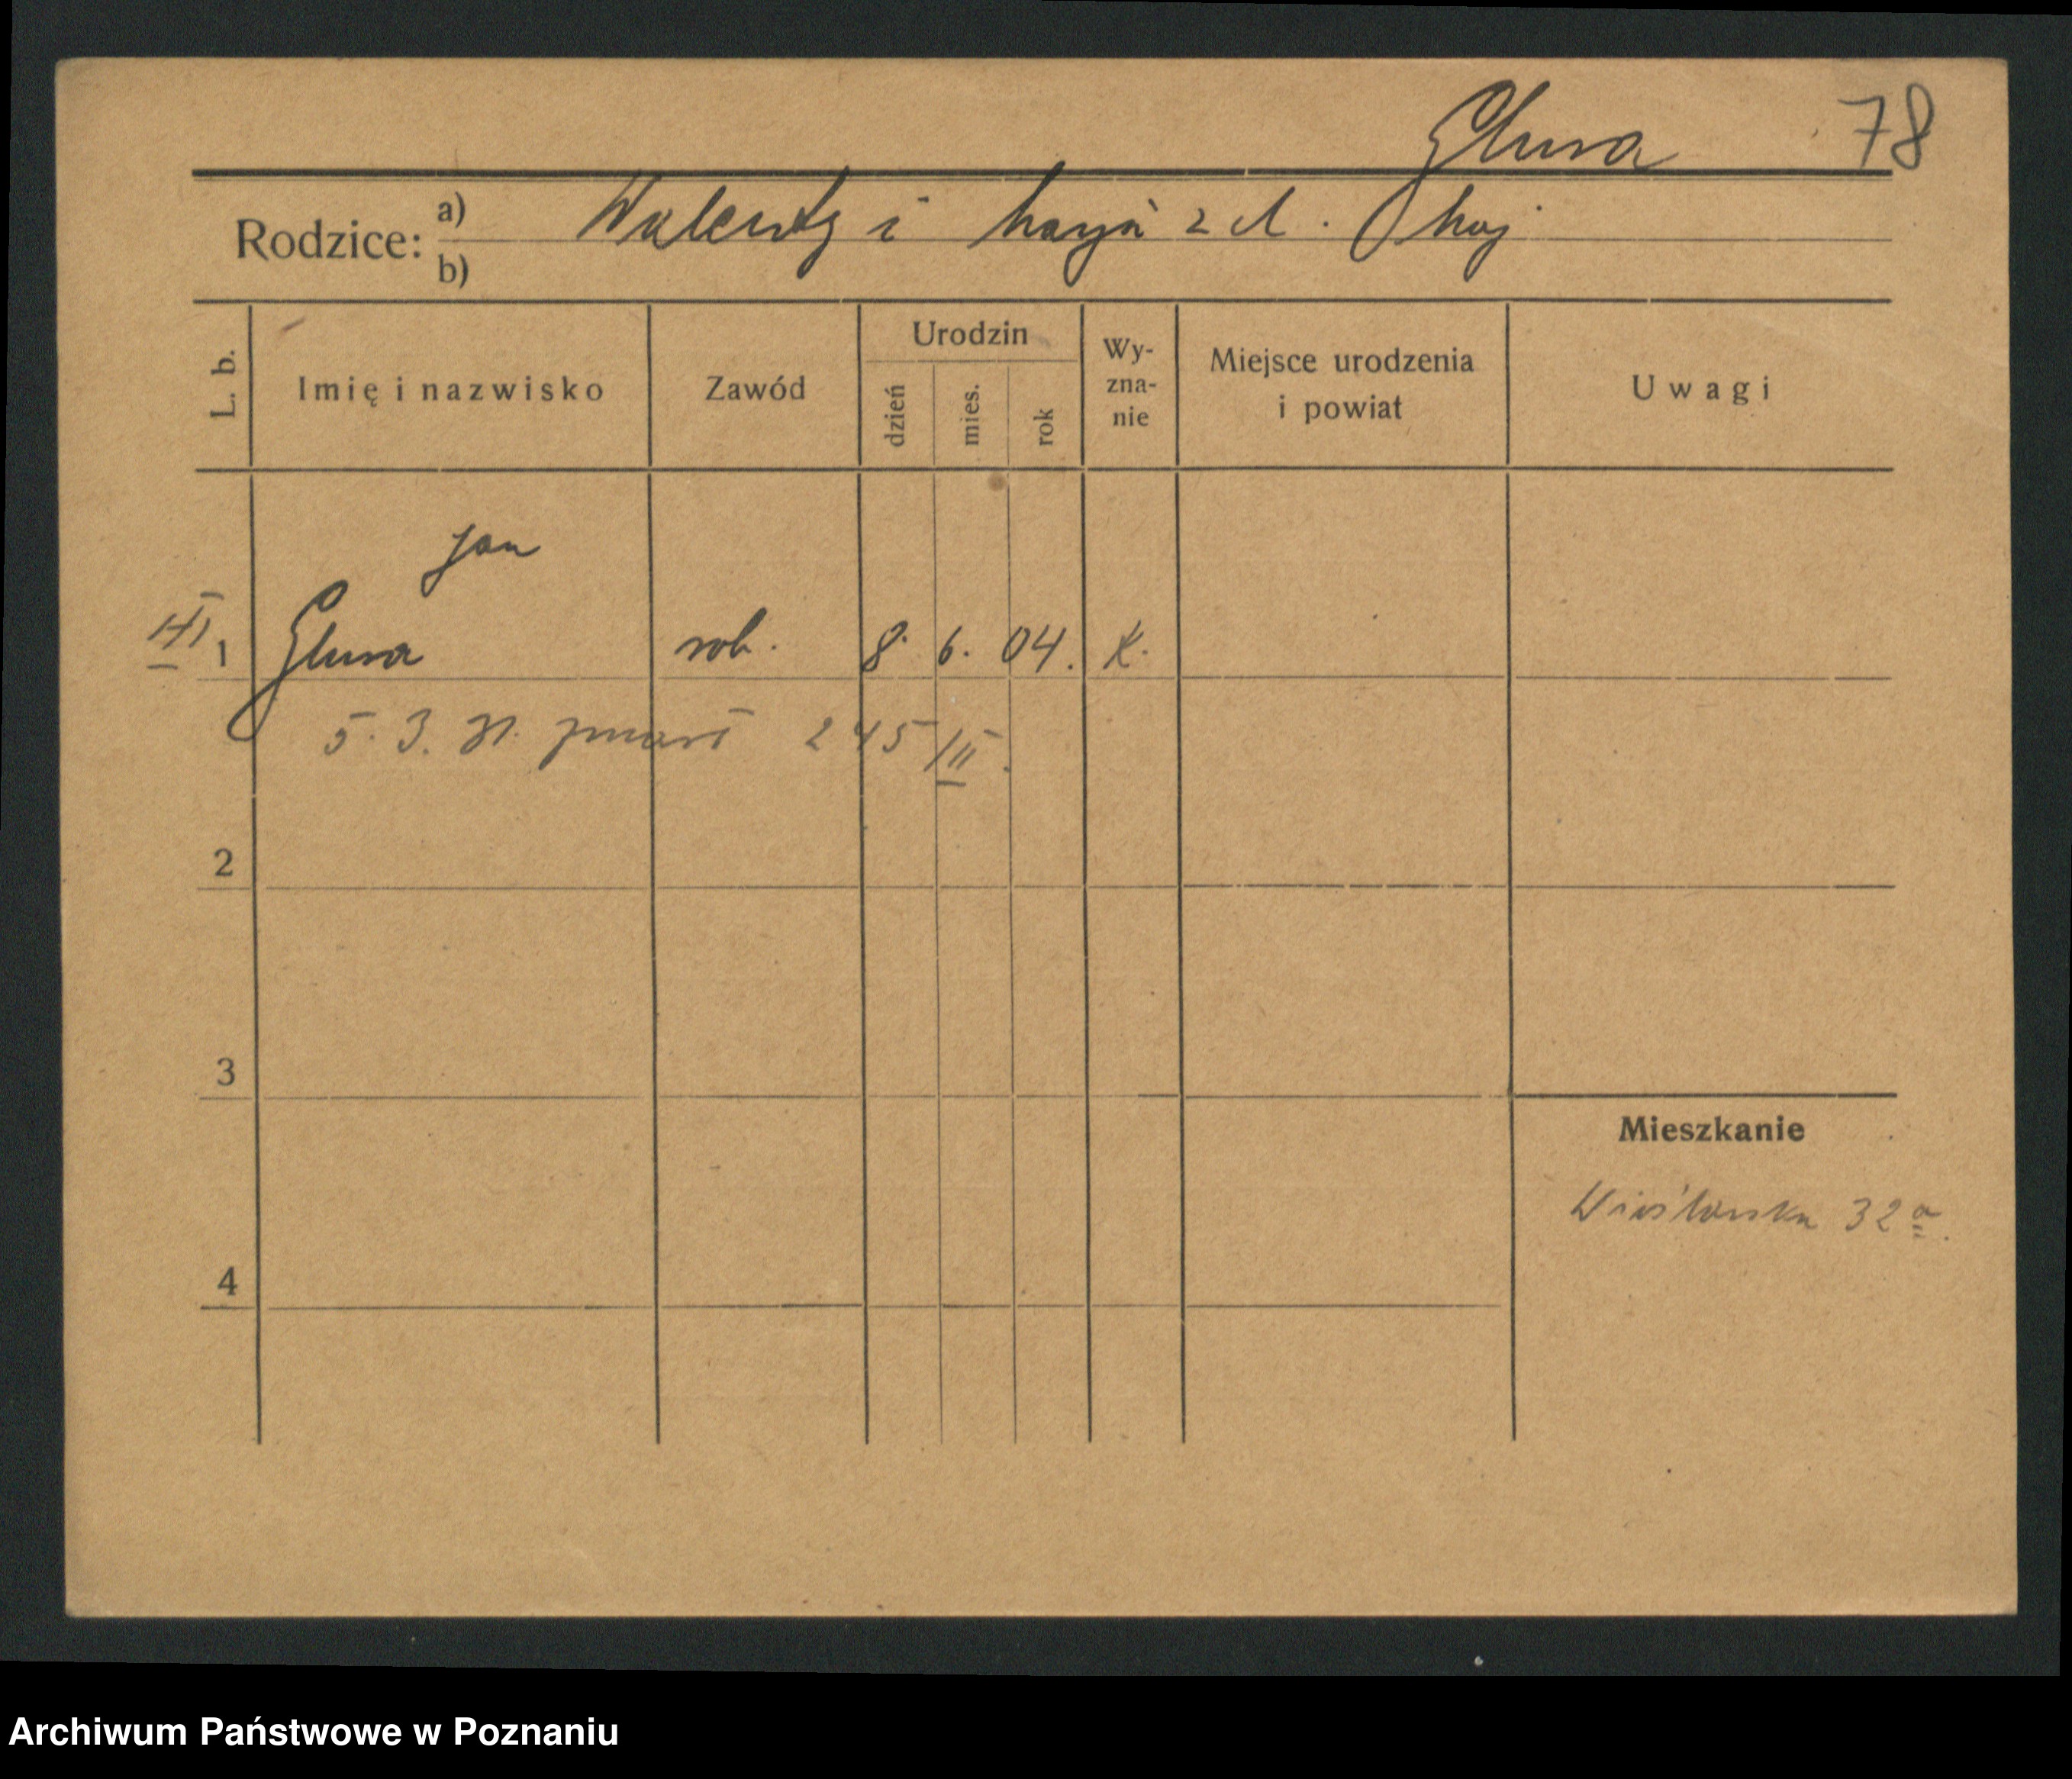 Glura 78
Rodzice: a) Walenty i Marja z d. Ohoj
b)
L. b. Imię i nazwisko Zawód Urodzin dzień mies. rok Wy-zna-nie Miejsce urodzenia i powiat Uwagi
Jan
III 1 Glura rob. 8. 6. 04. K.
5. 3. 31. zmarł 245/III.
2
3
Mieszkanie
Wiślańska 32a.
4
Archiwum Państwowe w Poznaniu